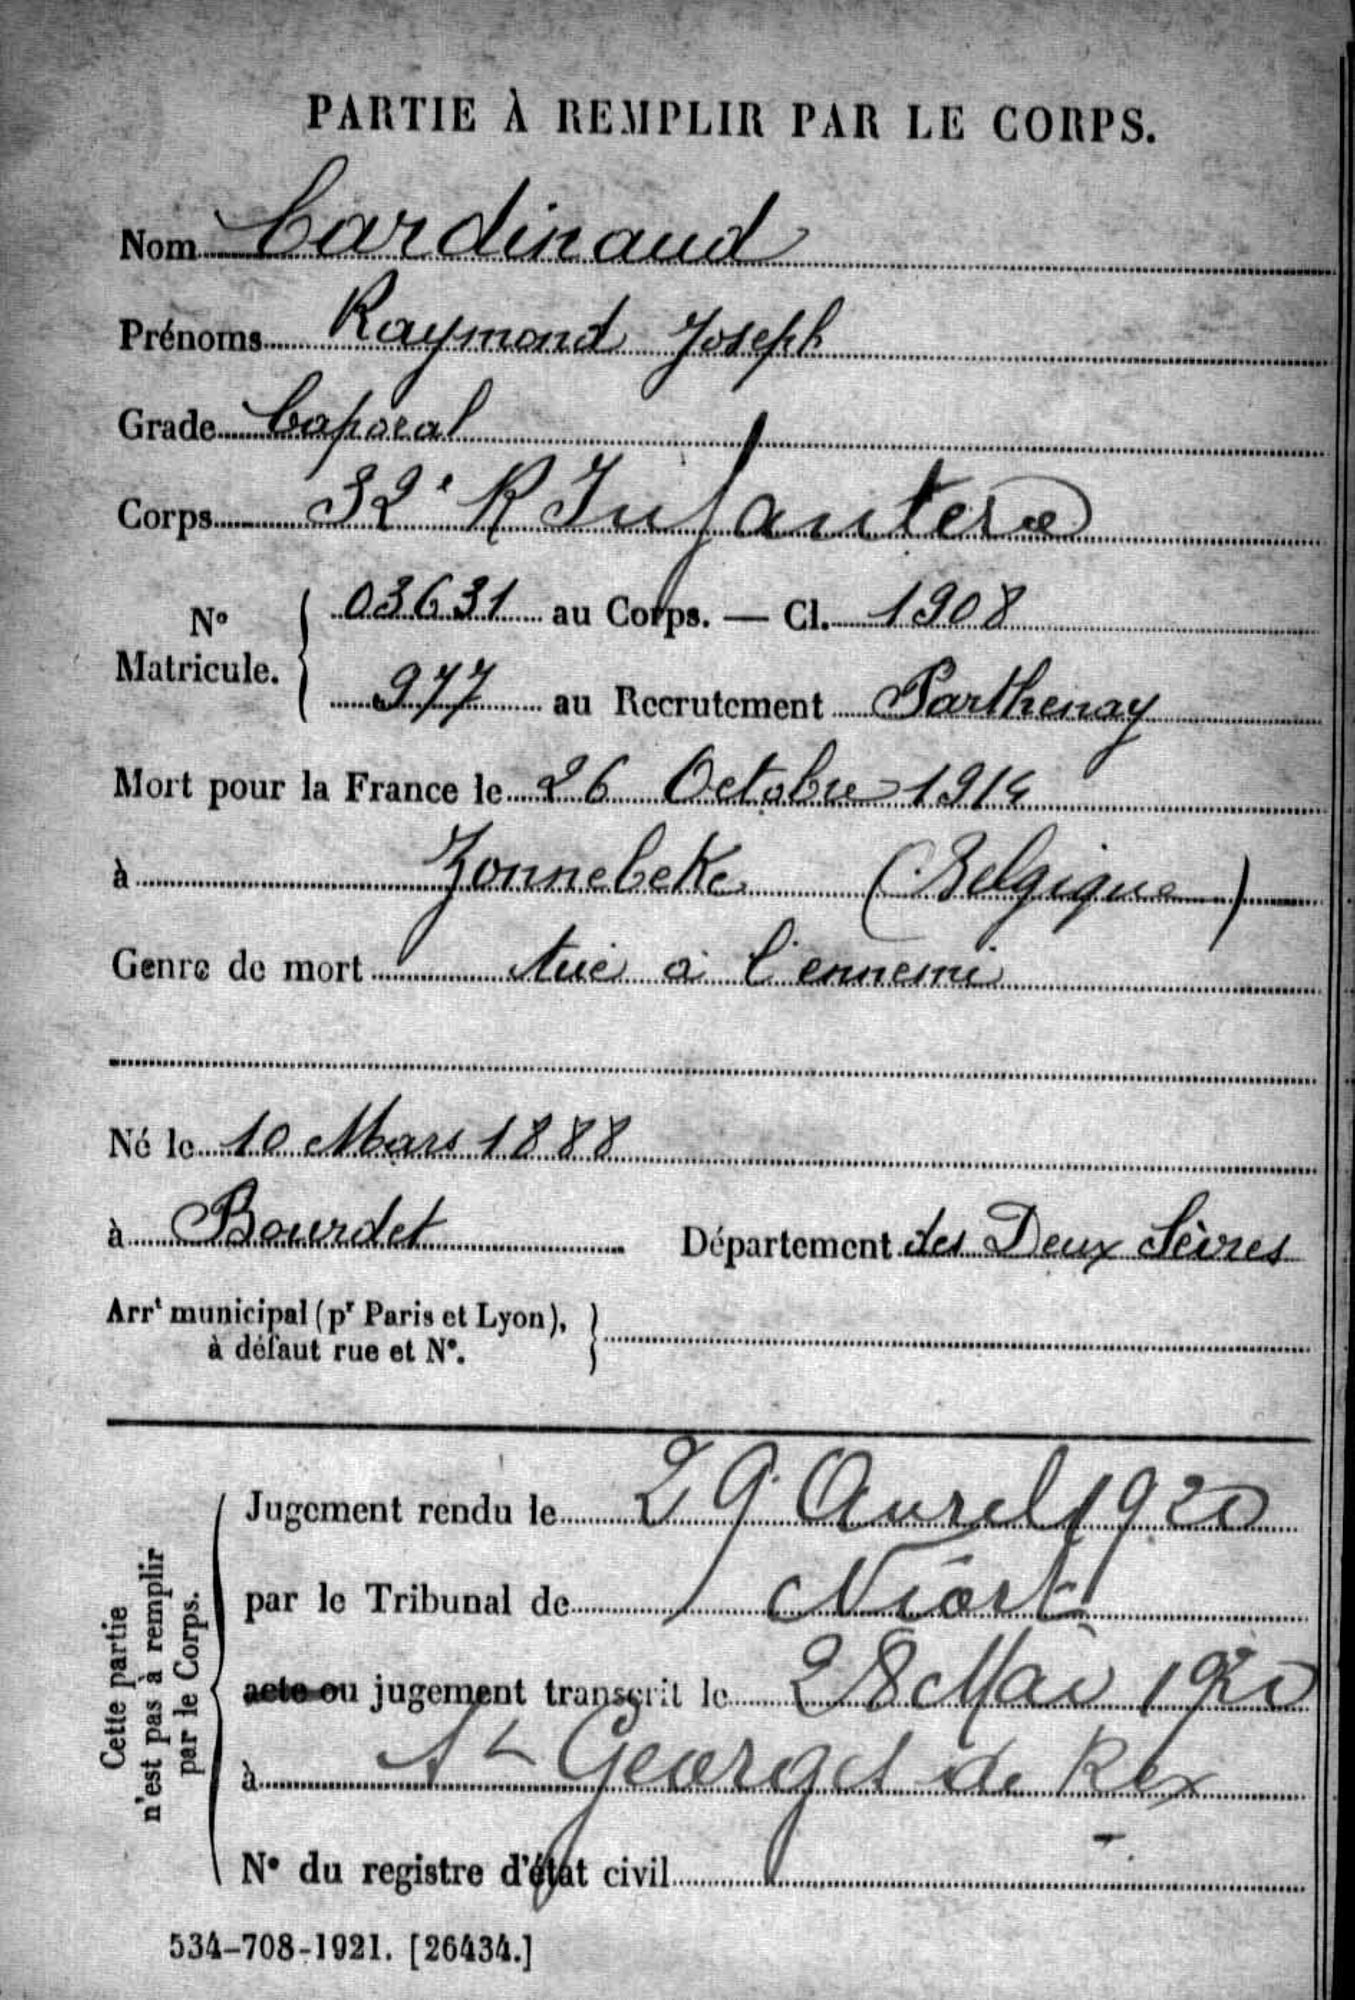 PARTIE À REMPLIR PAR LE CORPS.
Nom Cardinaud
Prénoms Raymond Joseph
Grade Caporal
Corps 32e R Infanterie
N° Matricule. { 03631 au Corps. — Cl. 1908
977 au Recrutement Parthenay
Mort pour la France le 26 Octobre 1914
à Zonnebeke (Belgique)
Genre de mort tué à l'ennemi
Né le 10 Mars 1888
à Bourdet Département des Deux Sèvres
Arrt municipal (pr Paris et Lyon),
à défaut rue et N°.
Cette partie
n'est pas à remplir
par le Corps.
Jugement rendu le 29 Avril 1920
par le Tribunal de Niort
acte ou jugement transcrit le 28 Mai 1920
à St Georges de Rex
N° du registre d'état civil
534-708-1921. [26434.]